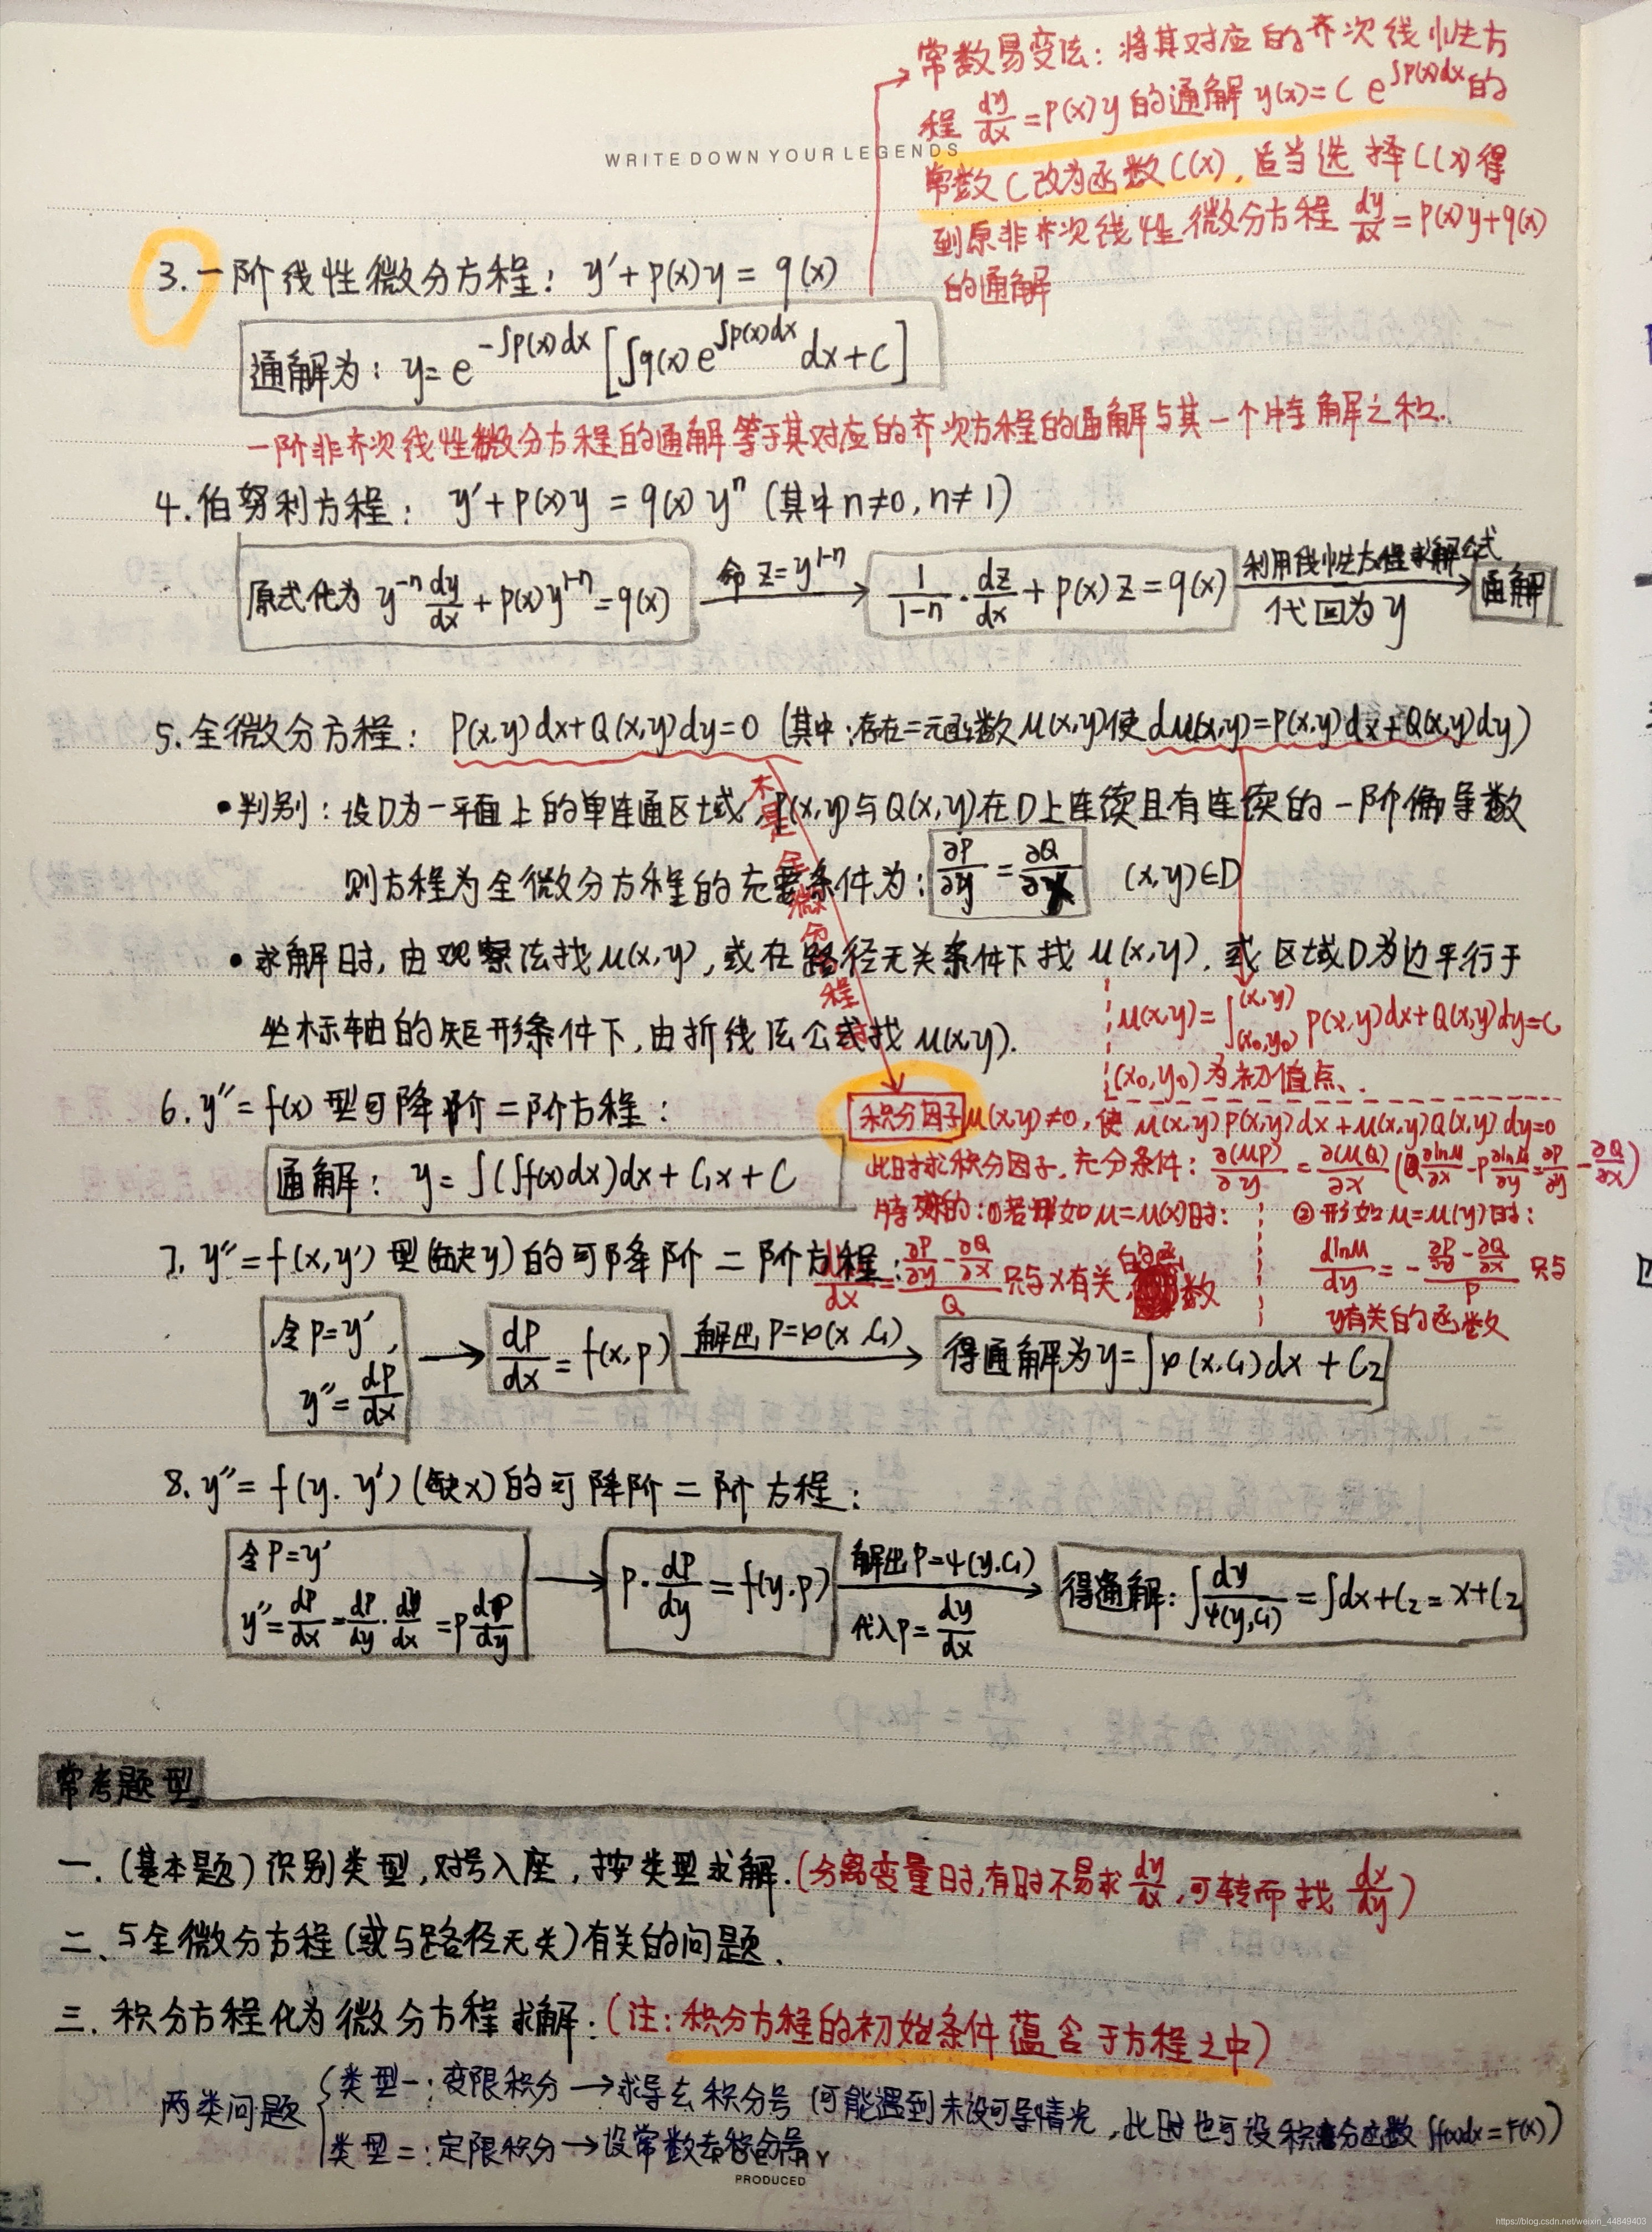 常数易变法：将其对应的齐次线性方
程 dy/dx = p(x)y 的通解 y(x) = C e^{∫p(x)dx} 的
常数C改为函数C(x)，适当选择C(x)得
到原非齐次线性微分方程 dy/dx = p(x)y+q(x)
的通解
WRITE DOWN YOUR LEGENDS
3. 一阶线性微分方程：y′+p(x)y = q(x)
通解为：y = e^{-∫p(x)dx} [∫q(x)e^{∫p(x)dx} dx+C]
一阶非齐次线性微分方程的通解等于其对应的齐次方程的通解与其一个特解之和.
4. 伯努利方程：y′+p(x)y = q(x)yⁿ (其中n≠0, n≠1)
原式化为 y^{-n} dy/dx + p(x)y^{1-n} = q(x)
命 z=y^{1-n}
1/(1-n) · dz/dx + p(x)z = q(x)
利用线性方程求解公式
代回为y
通解
5. 全微分方程：P(x,y)dx+Q(x,y)dy=0 (其中：存在二元函数μ(x,y)使dμ(x,y)=P(x,y)dx+Q(x,y)dy)
• 判别：设D为一平面上的单连通区域，P(x,y)与Q(x,y)在D上连续且有连续的一阶偏导数
则方程为全微分方程的充要条件为：∂P/∂y = ∂Q/∂x (x,y)∈D
不是全微分方程时
• 求解时，由观察法找μ(x,y)，或在路径无关条件下找 μ(x,y)，或区域D为边平行于
坐标轴的矩形条件下，由折线法公式找μ(x,y).
μ(x,y) = ∫_{(x₀,y₀)}^{(x,y)} P(x,y)dx+Q(x,y)dy=C
(x₀,y₀)为初值点.
6. y″= f(x) 型可降阶二阶方程：
通解：y = ∫(∫f(x)dx)dx + C₁x + C
积分因子μ(x,y)≠0，使 μ(x,y)P(x,y)dx+μ(x,y)Q(x,y)dy=0
此时求积分因子，充分条件：∂(μP)/∂y = ∂(μQ)/∂x (Q ∂lnμ/∂x - P ∂lnμ/∂y = ∂P/∂y - ∂Q/∂x)
特殊的：①若形如μ=μ(x)时：
dlnμ/dx = (∂P/∂y - ∂Q/∂x)/Q 只与x有关的函数
②形如μ=μ(y)时：
dlnμ/dy = -(∂P/∂y - ∂Q/∂x)/P 只与
y有关的函数
7. y″= f(x,y′) 型(缺y)的可降阶二阶方程：
令P=y′,
y″= dP/dx
dP/dx = f(x,p)
解出P=φ(x,C₁)
得通解为y=∫φ(x,C₁)dx + C₂
8. y″= f(y.y′)(缺x)的可降阶二阶方程：
令P=y′
y″= dP/dx = dP/dy · dy/dx = p dP/dy
p · dP/dy = f(y.p)
解出P=ψ(y.C₁)
代入p= dy/dx
得通解：∫ dy/ψ(y,C₁) = ∫dx+C₂ = x+C₂
常考题型
一. (基本题)识别类型，对号入座，按类型求解.(分离变量时,有时不易求dy/dx,可转而找 dx/dy)
二、与全微分方程(或与路径无关)有关的问题.
三. 积分方程化为微分方程求解：(注：积分方程的初始条件蕴含于方程之中)
两类问题
类型一：变限积分→求导去积分号 (可能遇到未设可导情况，此时也可设积分函数 ∫f(x)dx=F(x))
类型二：定限积分→设常数去积分号
PRODUCED
https://blog.csdn.net/weixin_44849403